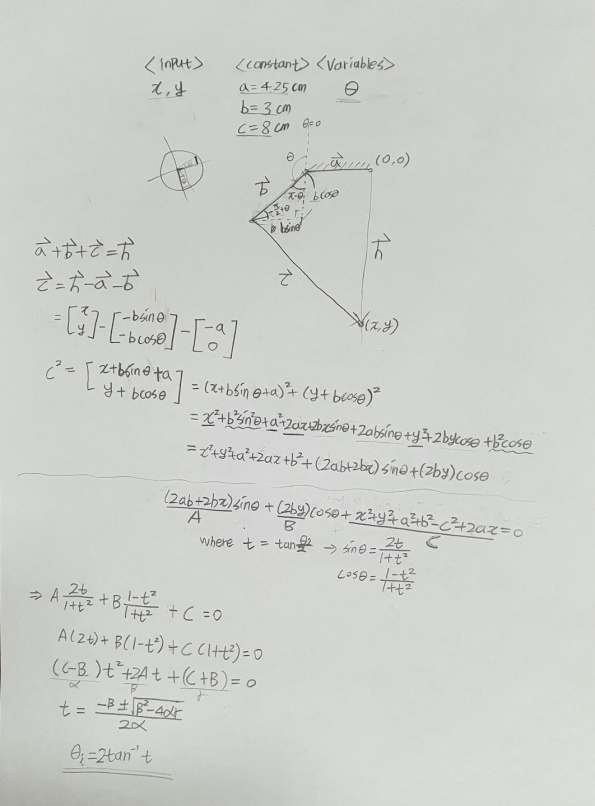 <Input> <constant> <Variables>
x, y a=4.25cm θ
b=3cm
c=8cm θ=0
θ a⃗ (0,0)
b⃗ π-θ bcosθ
bsinθ
h⃗
c⃗
(x,y)
a⃗+b⃗+c⃗=h⃗
c⃗=h⃗-a⃗-b⃗
=[x y]-[-bsinθ -bcosθ]-[-a 0]
c²=[x+bsinθ+a y+bcosθ]=(x+bsinθ+a)²+(y+bcosθ)²
=x²+b²sin²θ+a²+2ax+2bxsinθ+2absinθ+y²+2bycosθ+b²cosθ
=x²+y²+a²+2ax+b²+(2ab+2bx)sinθ+(2by)cosθ
(2ab+2bx)sinθ+(2by)cosθ+x²+y²+a²+b²-c²+2ax=0
A B C
where t=tanθ/2 → sinθ=2t/1+t²
cosθ=1-t²/1+t²
⇒ A 2t/1+t² + B 1-t²/1+t² + C=0
A(2t)+B(1-t²)+C(1+t²)=0
(C-B)t²+2At+(C+B)=0
α β γ
t=-β±√β²-4αγ/2α
θᵢ=2tan⁻¹t